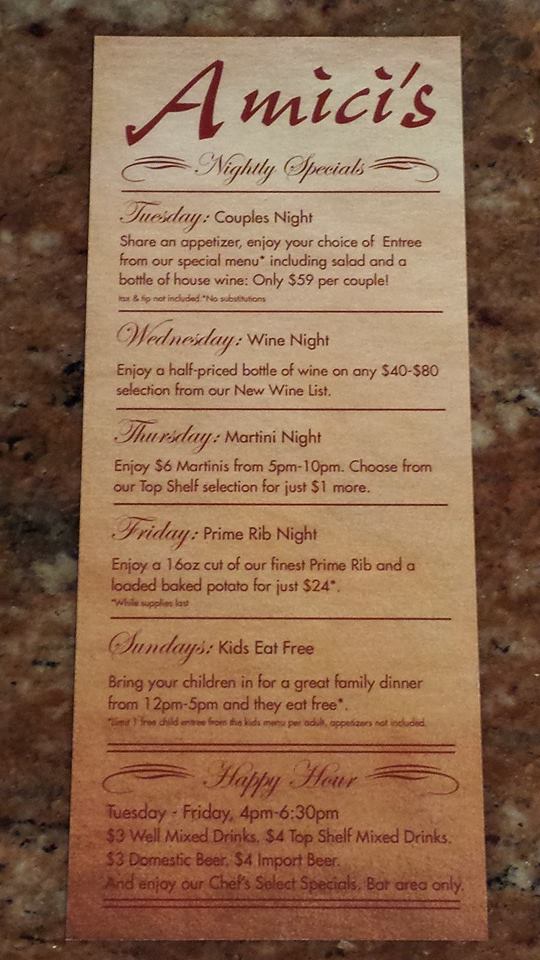 Amici's
Nightly Specials
Tuesday: Couples Night
Share an appetizer, enjoy your choice of Entree
from our special menu* including salad and a
bottle of house wine: Only $59 per couple!
tax & tip not included.*No substitutions
Wednesday: Wine Night
Enjoy a half-priced bottle of wine on any $40-$80
selection from our New Wine List.
Thursday: Martini Night
Enjoy $6 Martinis from 5pm-10pm. Choose from
our Top Shelf selection for just $1 more.
Friday: Prime Rib Night
Enjoy a 16oz cut of our finest Prime Rib and a
loaded baked potato for just $24*.
*While supplies last
Sundays: Kids Eat Free
Bring your children in for a great family dinner
from 12pm-5pm and they eat free*.
*Limit 1 free child entree from the kids menu per adult, appetizers not included.
Happy Hour
Tuesday - Friday, 4pm-6:30pm
$3 Well Mixed Drinks. $4 Top Shelf Mixed Drinks.
$3 Domestic Beer. $4 Import Beer.
And enjoy our Chef's Select Specials. Bar area only.